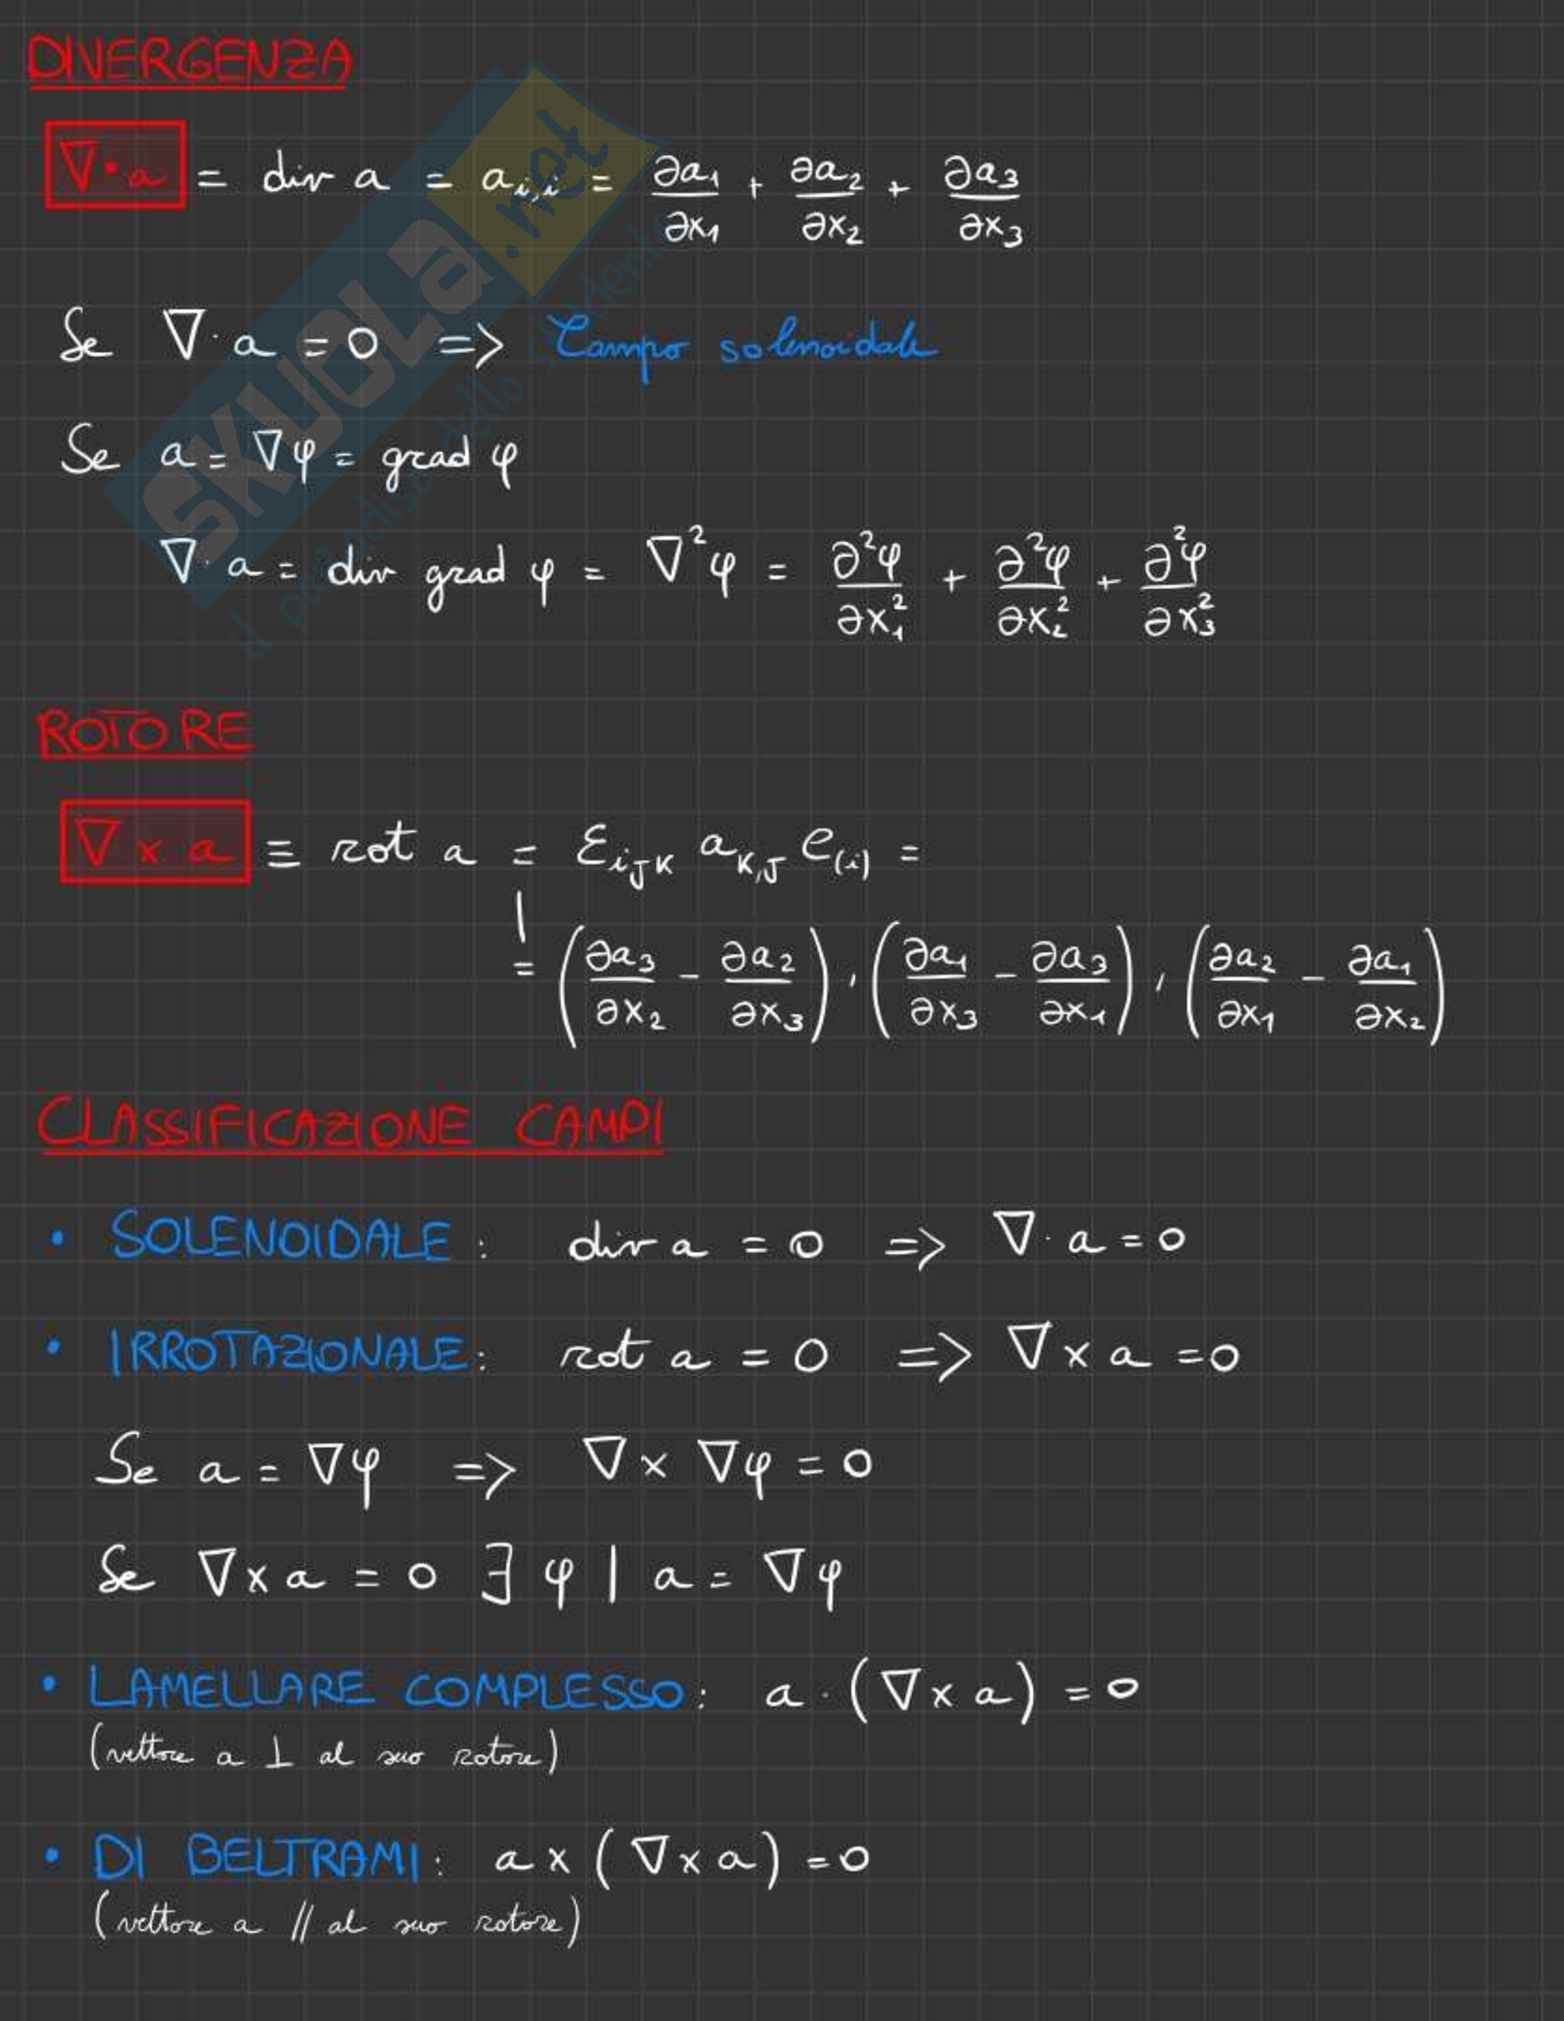 DIVERGENZA
∇·a = div a = a_{i,i} = ∂a₁/∂x₁ + ∂a₂/∂x₂ + ∂a₃/∂x₃
SKUOLA.net
Se ∇·a = 0 => Campo solenoidale
Se a = ∇φ = grad φ
∇·a = div grad φ = ∇²φ = ∂²φ/∂x₁² + ∂²φ/∂x₂² + ∂²φ/∂x₃²
ROTORE
∇ × a ≡ rot a = ε_{iJK} a_{K,J} e_{(i)} =
= (∂a₃/∂x₂ - ∂a₂/∂x₃), (∂a₁/∂x₃ - ∂a₃/∂x₁), (∂a₂/∂x₁ - ∂a₁/∂x₂)
CLASSIFICAZIONE CAMPI
• SOLENOIDALE: div a = 0 => ∇·a = 0
• IRROTAZIONALE: rot a = 0 => ∇ × a = 0
Se a = ∇φ => ∇ × ∇φ = 0
Se ∇ × a = 0 ∃ φ | a = ∇φ
• LAMELLARE COMPLESSO: a · (∇ × a) = 0
(vettore a ⊥ al suo rotore)
• DI BELTRAMI: a × (∇ × a) = 0
(vettore a // al suo rotore)